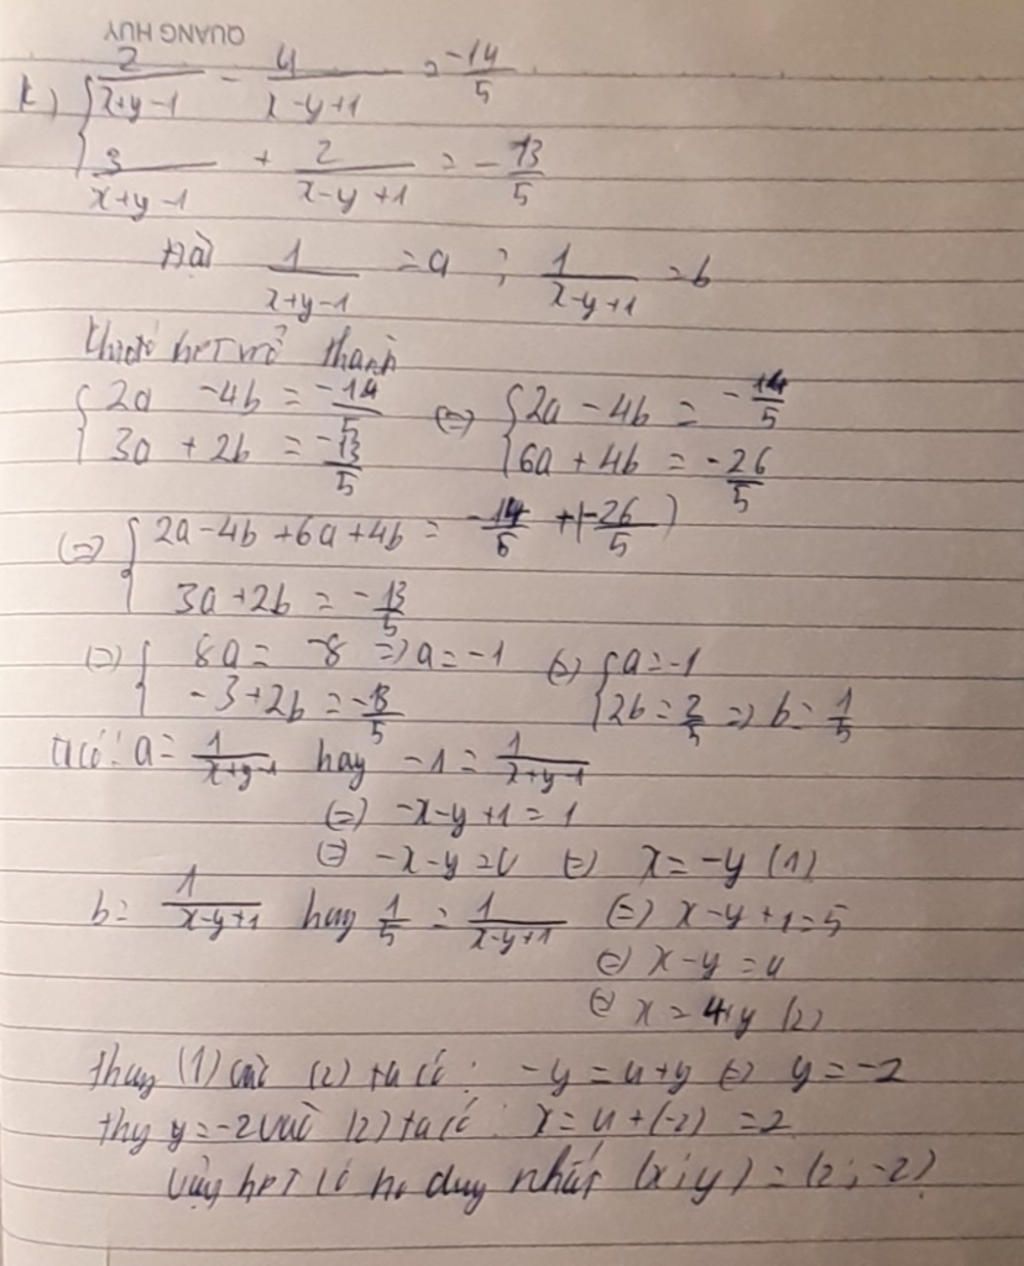 QUANG HUY
k) { 2/(x+y-1) - 4/(x-y+1) = -14/5
3/(x+y-1) + 2/(x-y+1) = -13/5
Đặt 1/(x+y-1) = a ; 1/(x-y+1) = b
HPT trở thành
{ 2a - 4b = -14/5 (=) { 2a - 4b = -14/5
3a + 2b = -13/5 6a + 4b = -26/5
(=) { 2a - 4b + 6a + 4b = -14/5 + (-26/5)
3a + 2b = -13/5
(=) { 8a = -8 => a = -1 (=) { a = -1
-3 + 2b = -13/5 2b = 2/5 => b = 1/5
ta có: a = 1/(x+y-1) hay -1 = 1/(x+y-1)
(=) -x-y+1 = 1
(=) -x-y = 0 (=) x = -y (1)
b = 1/(x-y+1) hay 1/5 = 1/(x-y+1) (=) x-y+1 = 5
(=) x-y = 4
(=) x = 4+y (2)
thay (1) vào (2) ta có: -y = 4+y (=) y = -2
thy y = -2 vào (2) ta có: x = 4+(-2) = 2
Vậy hPT có no duy nhất (x;y) = (2;-2)